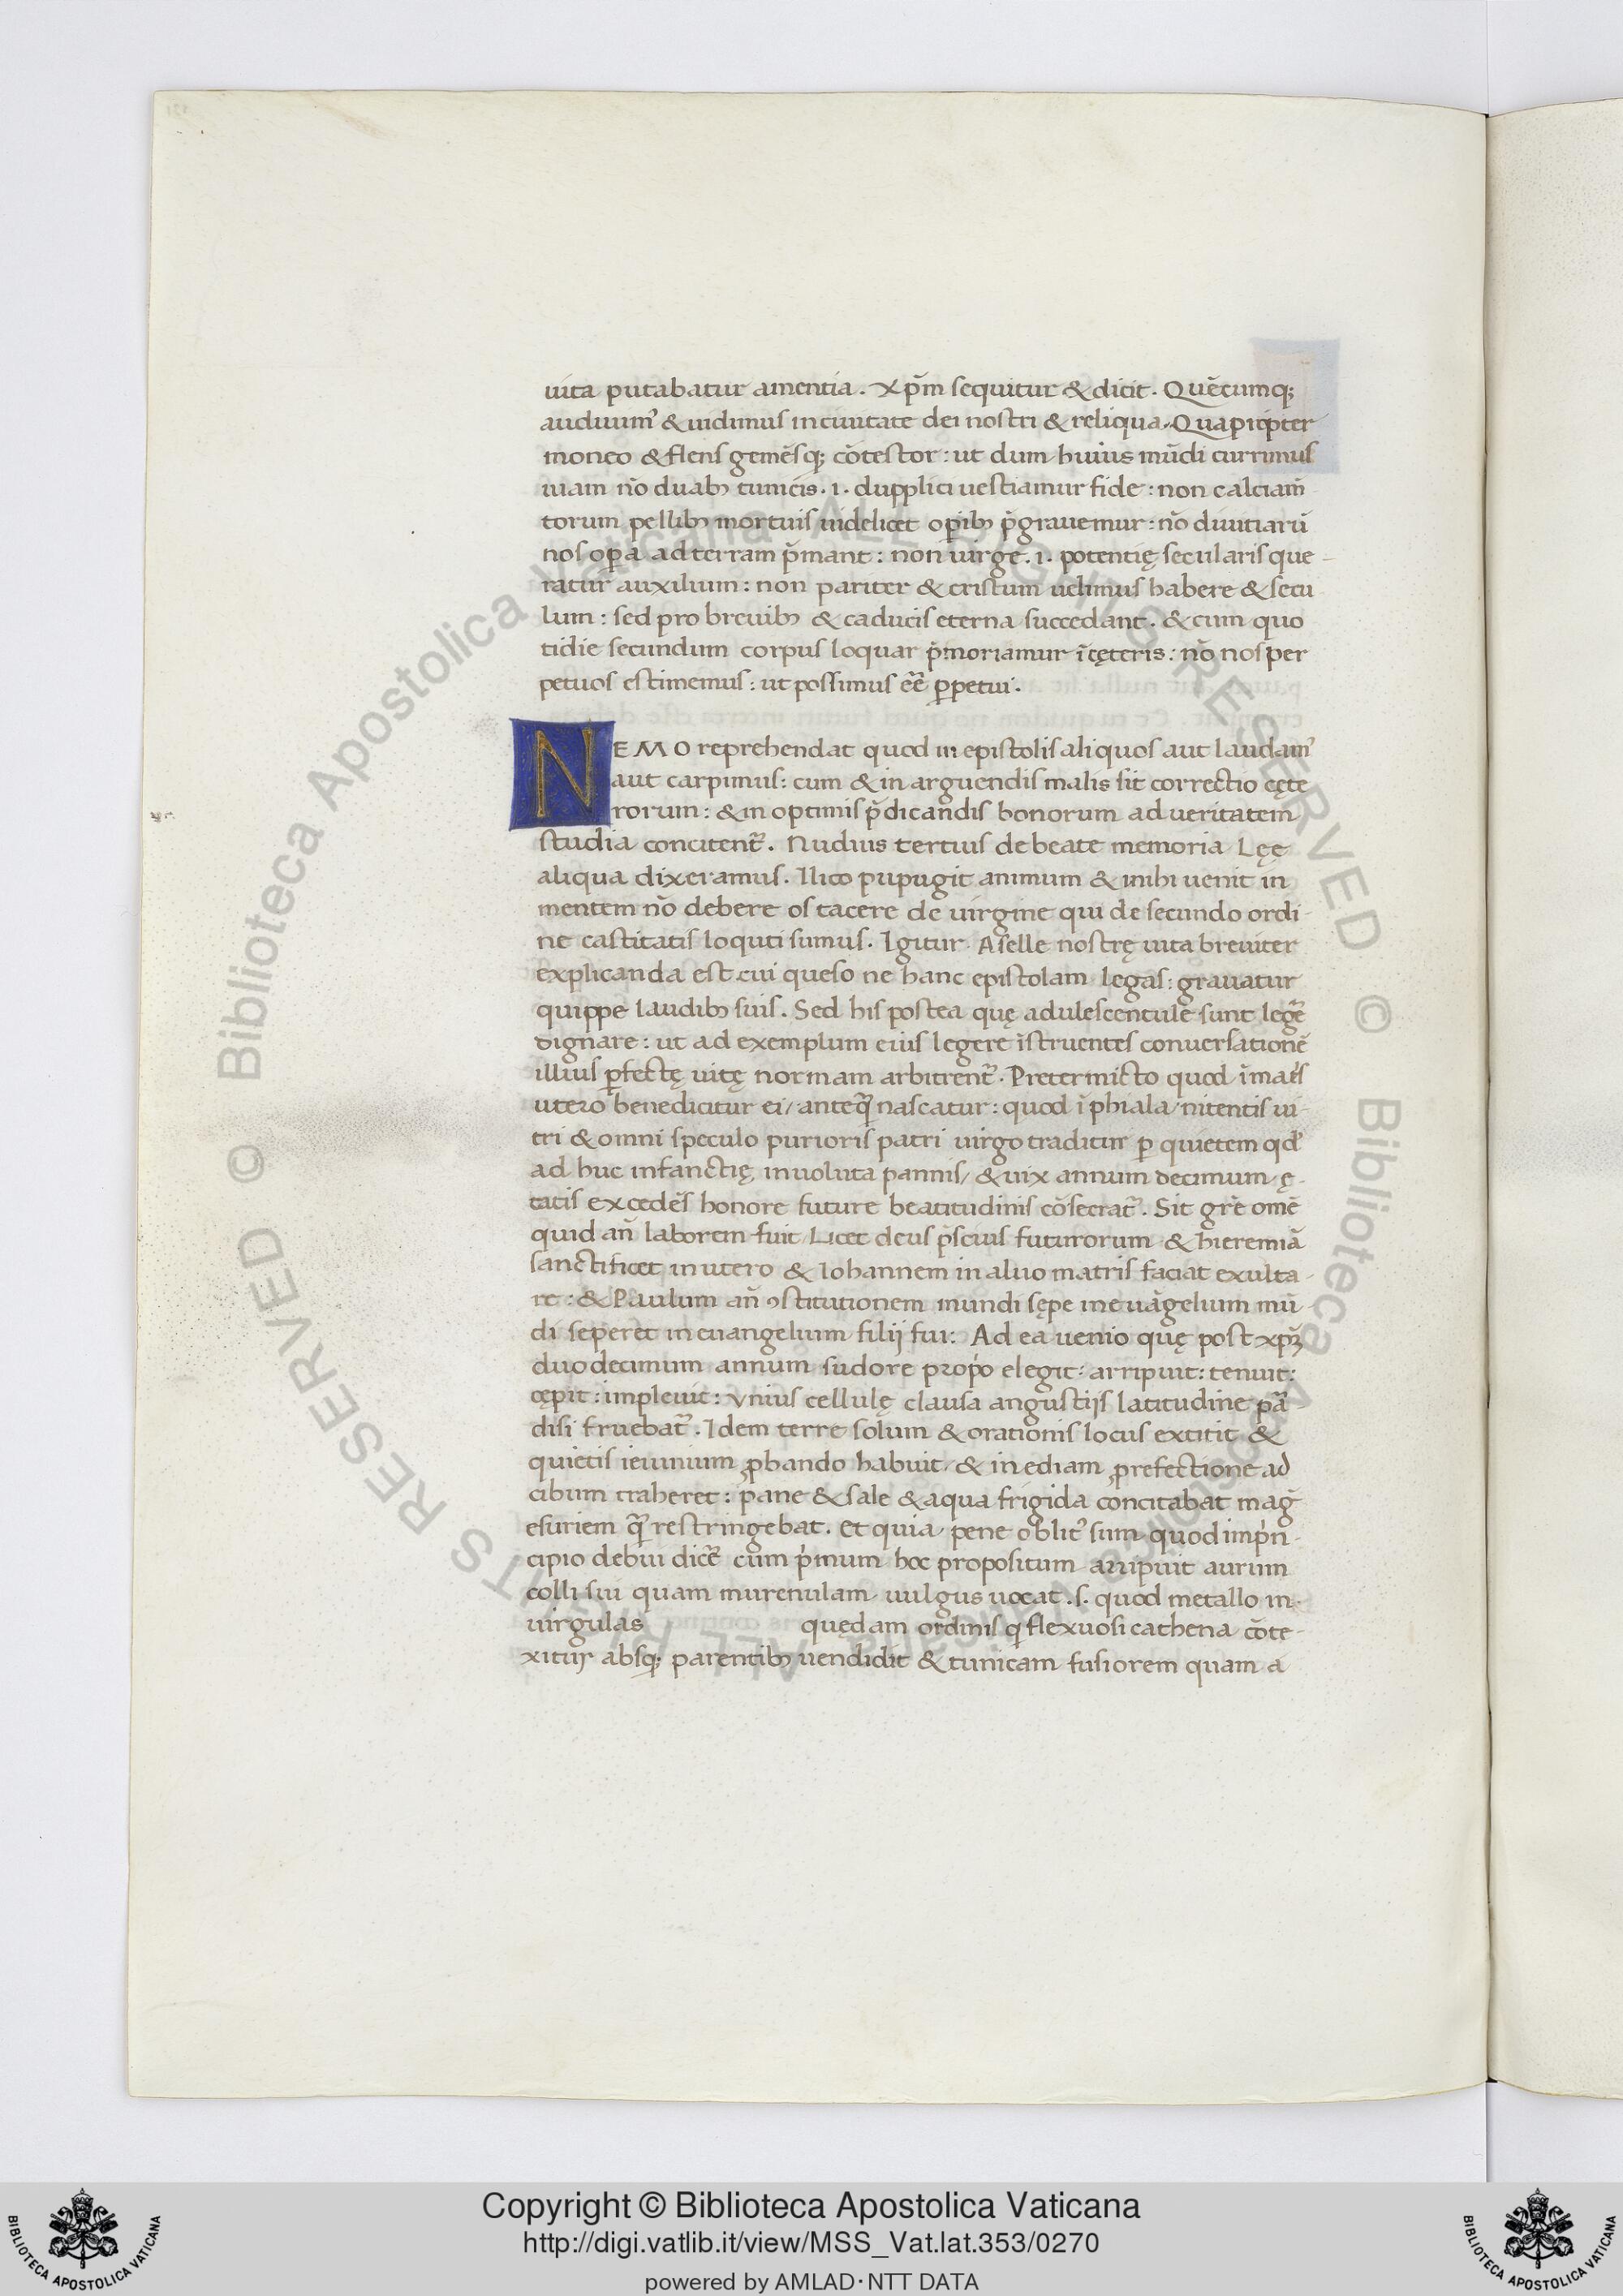 uita putabatur amentia. Xp̄m sequitur & dicit. Quēcumq;
audiuim᾽ & uidimus in ciuitate dei nostri & reliqua. Quapropter
moneo & flens gemēsq; cōtestor: ut dum huius mūdi currimus
uiam nō duab; tunicis .i. dupplici uestiamur fide: non calciam̄
torum pellib; mortuis uidelicet op̄ib; p̄grauemur: nō diuitiarū
nos op̄a ad terram p̄mant: non uirgę .i. potentię secularis que
ratur auxilium: non pariter & cristum uelimus habere & secu
lum: sed pro breuib; & caducis eterna succedant. & cum quo
tidie secundum corpus loquar p̄moriamur ī cęteris: nō nos per
petuos estimemus: ut possimus eē̄ ꝑpetui.
NEMO reprehendat quod in epistolis aliquos aut laudam᾽
aut carpimus: cum & in arguendis malis sit correctio cęte
rorum: & in optimis p̄dicandis bonorum ad ueritatem
studia concitent᷑. Nudius tertius de beate memoria Lęę
aliqua dixeramus. Ilico pupugit animum & mihi uenit in
mentem nō debere os tacere de uirgine qui de secundo ordi
ne castitatis loquti sumus. Igitur Aselle nostrę uita breuiter
explicanda est cui queso ne hanc epistolam legas: grauatur
quippe laudib; suis. Sed his postea quę adulescentule sunt legē
dignare: ut ad exemplum eius legere īstruentes conuersationē
illius ꝑfectę uitę normam arbitrent᷑. Pretermicto quod ī maīs
utero benedicitur ei / anteq̄ nascatur: quod ī phiala nitentis ui
tri & omni speculo purioris patri uirgo traditur ꝑ quietem qd᾽
ad huc infanctię inuoluta pannis / & uix annum decimum ę
tatis excedēs honore future beatitudinis cōsecrat᷑. Sit gr̄e omē
quid an̄ laborem fuit Licet deus p̄scius futurorum & hieremiā
sanctificet in utero & Iohannem in aluo matris faciat exulta
re: & Paulum an̄ ꝯstitutionem mundi sępe in euāgelium mū
di seperet in euangelium filij sui: Ad ea uenio quę post xp̄ꝫ
duodecimum annum sudore prop̄o elegit: arripuit: tenuit:
cępit: impleuit: vnius cellulę clausa angustijs latitudine pā
disi fruebat᷑. Idem terre solum & orationis locus extitit &
quietis ieiunium ꝓbando habuit / & inediam ꝓrefectione ad
cibum traheret: pane & sale & aqua frigida concitabat mag̅
esuriem q̄ restringebat. Et quia pene oblit᾽ sum quod in p̄n
cipio debui dicē cum p̄mum hoc propositum arripuit aurum
colli sui quam murenulam uulgus uocat .s. quod metallo in
uirgulas quędam ordinis q̄ flexuosi cathena cōte
xitur absq; parentib; uendidit & tunicam fusiorem quam a
Copyright © Biblioteca Apostolica Vaticana
http://digi.vatlib.it/view/MSS_Vat.lat.353/0270
powered by AMLAD·NTT DATA
BIBLIOTECA APOSTOLICA VATICANA
BIBLIOTECA APOSTOLICA VATICANA